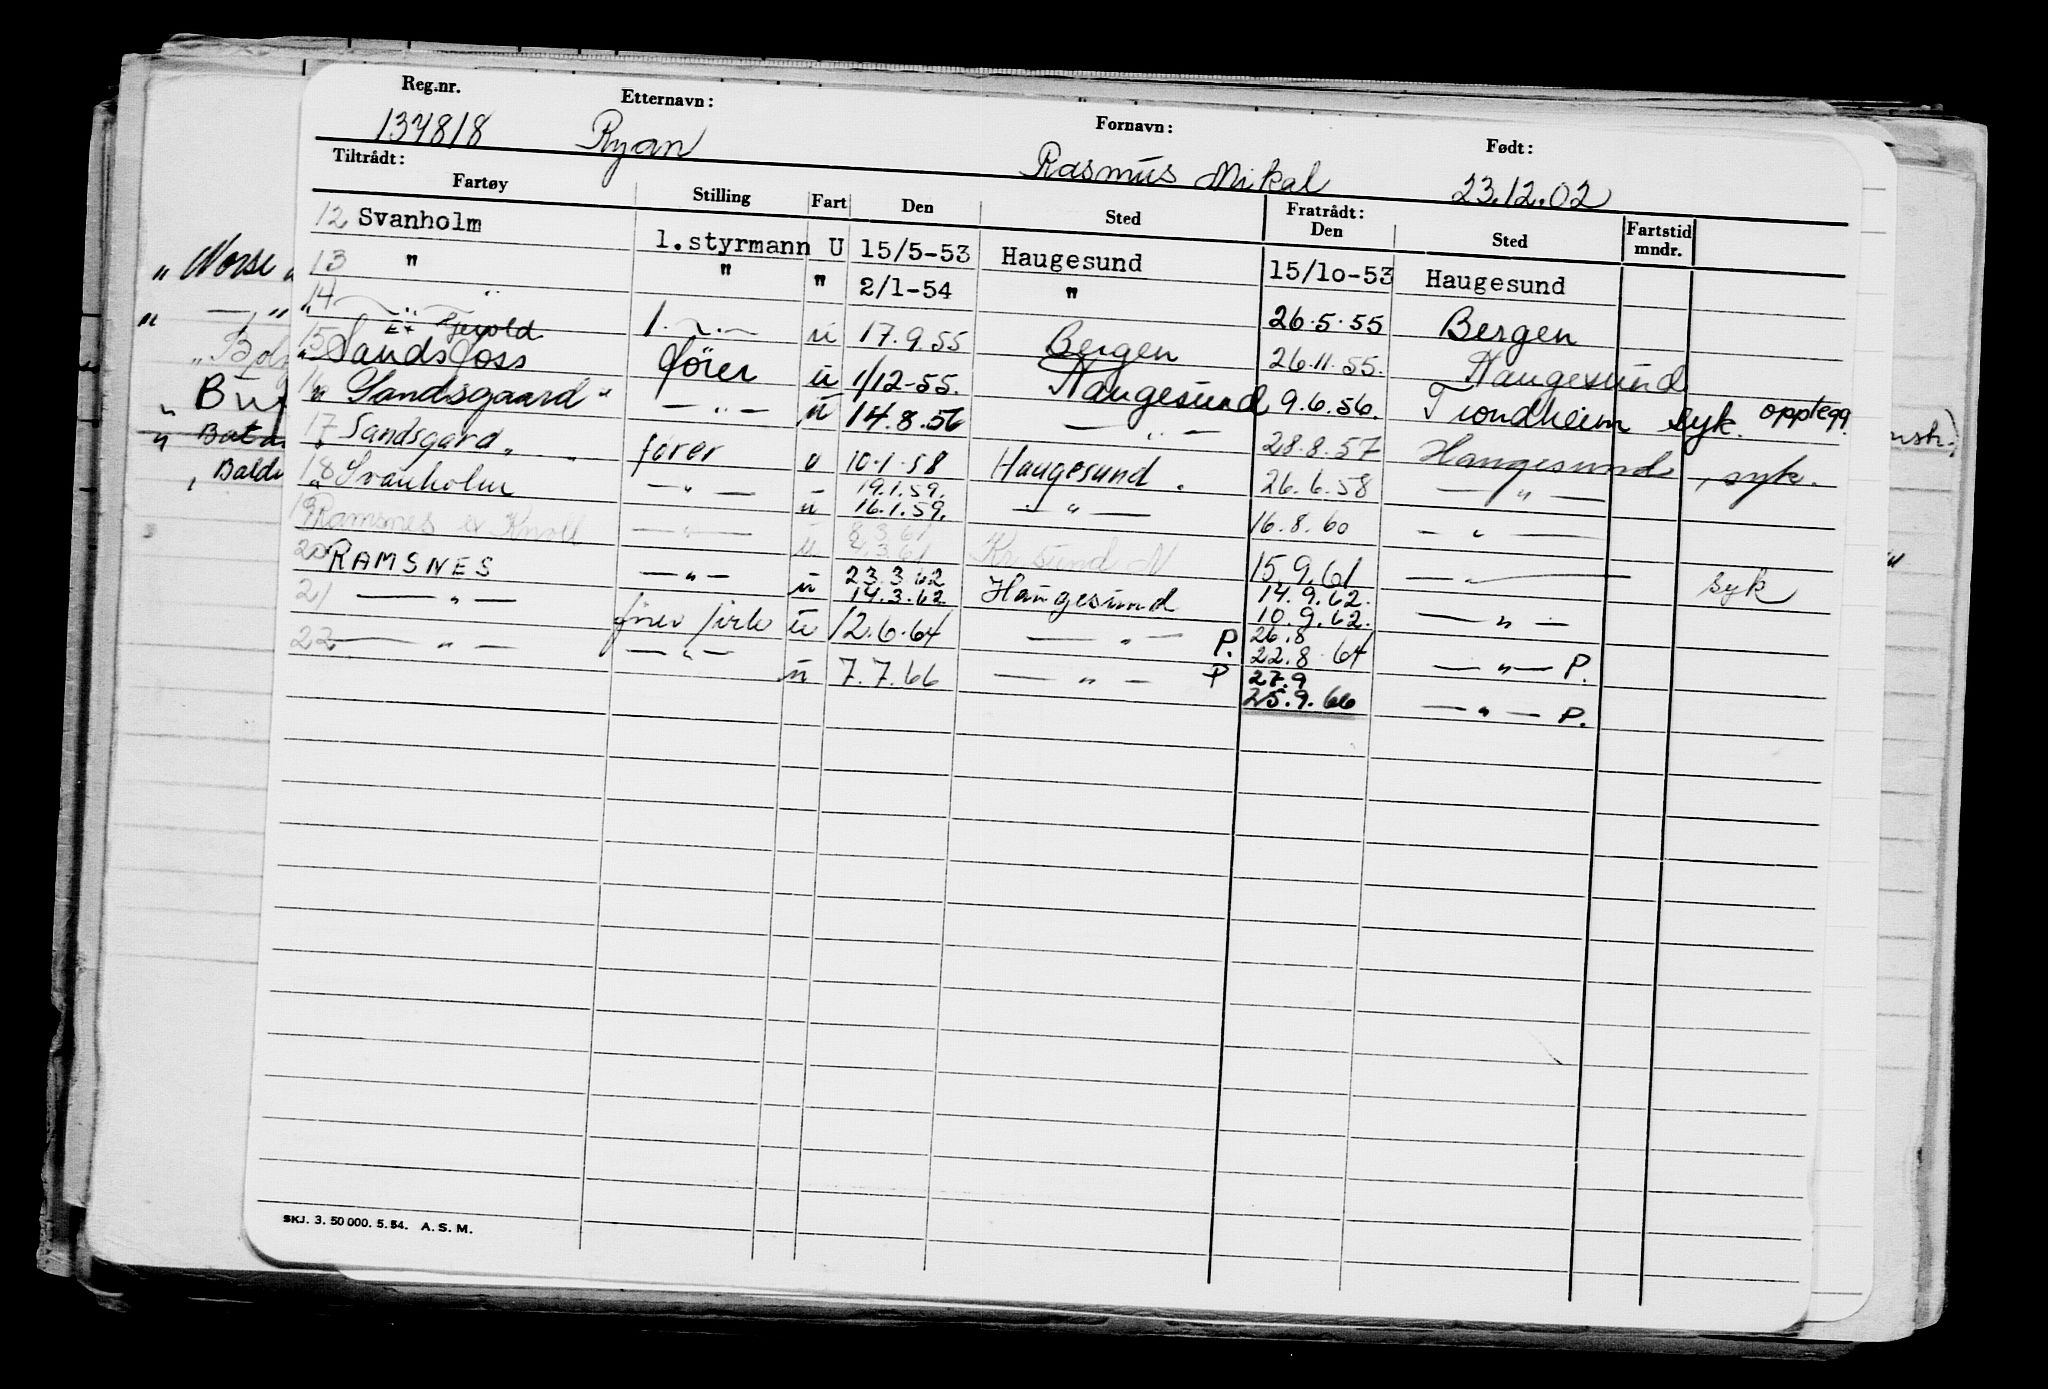 Reg.nr. Etternavn: Fornavn: Født:
137818 Ryan Rasmus Mikal 23.12.02
Tiltrådt: Fratrådt:
Fartøy Stilling Fart Den Sted Den Sted Fartstid mndr.
12 Svanholm 1.styrmann U 15/5-53 Haugesund 15/10-53 Haugesund
13 " " " 2/1-54 " 26.5.55 Bergen
14 — " — 1. — " — u 17.9.55 Bergen 26.11.55. Haugesund
Ex Gjevold
15 "Sandsfoss fører u 1/12-55. Haugesund 9.6.56. Trondheim syk. opplegg
16 "Sandsgaard" — " — u 14.8.56 — " — 28.8.57 Haugesund, syk.
17 Sandsgard " fører u 10.1.58 Haugesund. 26.6.58 — " —
18 Svanholm — " — u 19.1.59. 16.1.59. — " — 16.8.60 — " —
19 Ramsnes ex Knoll — " — u 8.3.61 Kr.sund N 15.9.61 — " — syk
20 RAMSNES — " — u 23.3.62 14.3.62 Haugesund 14.9.62. 10.9.62. — " —
21 — " — fører u 12.6.64 — " — P. 26.8 22.8.64 — " — P.
22 — " — — " — u 7.7.66 — " — P 27.9 25.9.66 — " — P.
" Norse
" — " —
Bu
Bald
SKJ. 3. 50 000. 5. 54. A. S. M.